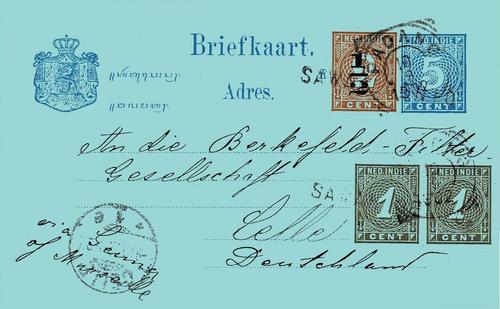 Briefkaart.
Adres.
NED. INDIE
2½
CENT
NED. INDIE
5
CENT
PADANG
SAW
An die Berkefeld-Filter
Gesellschaft
NED. INDIE
1
CENT
NED. INDIE
1
CENT
SAW
Celle
Deutschland
via Genua
of Marseille